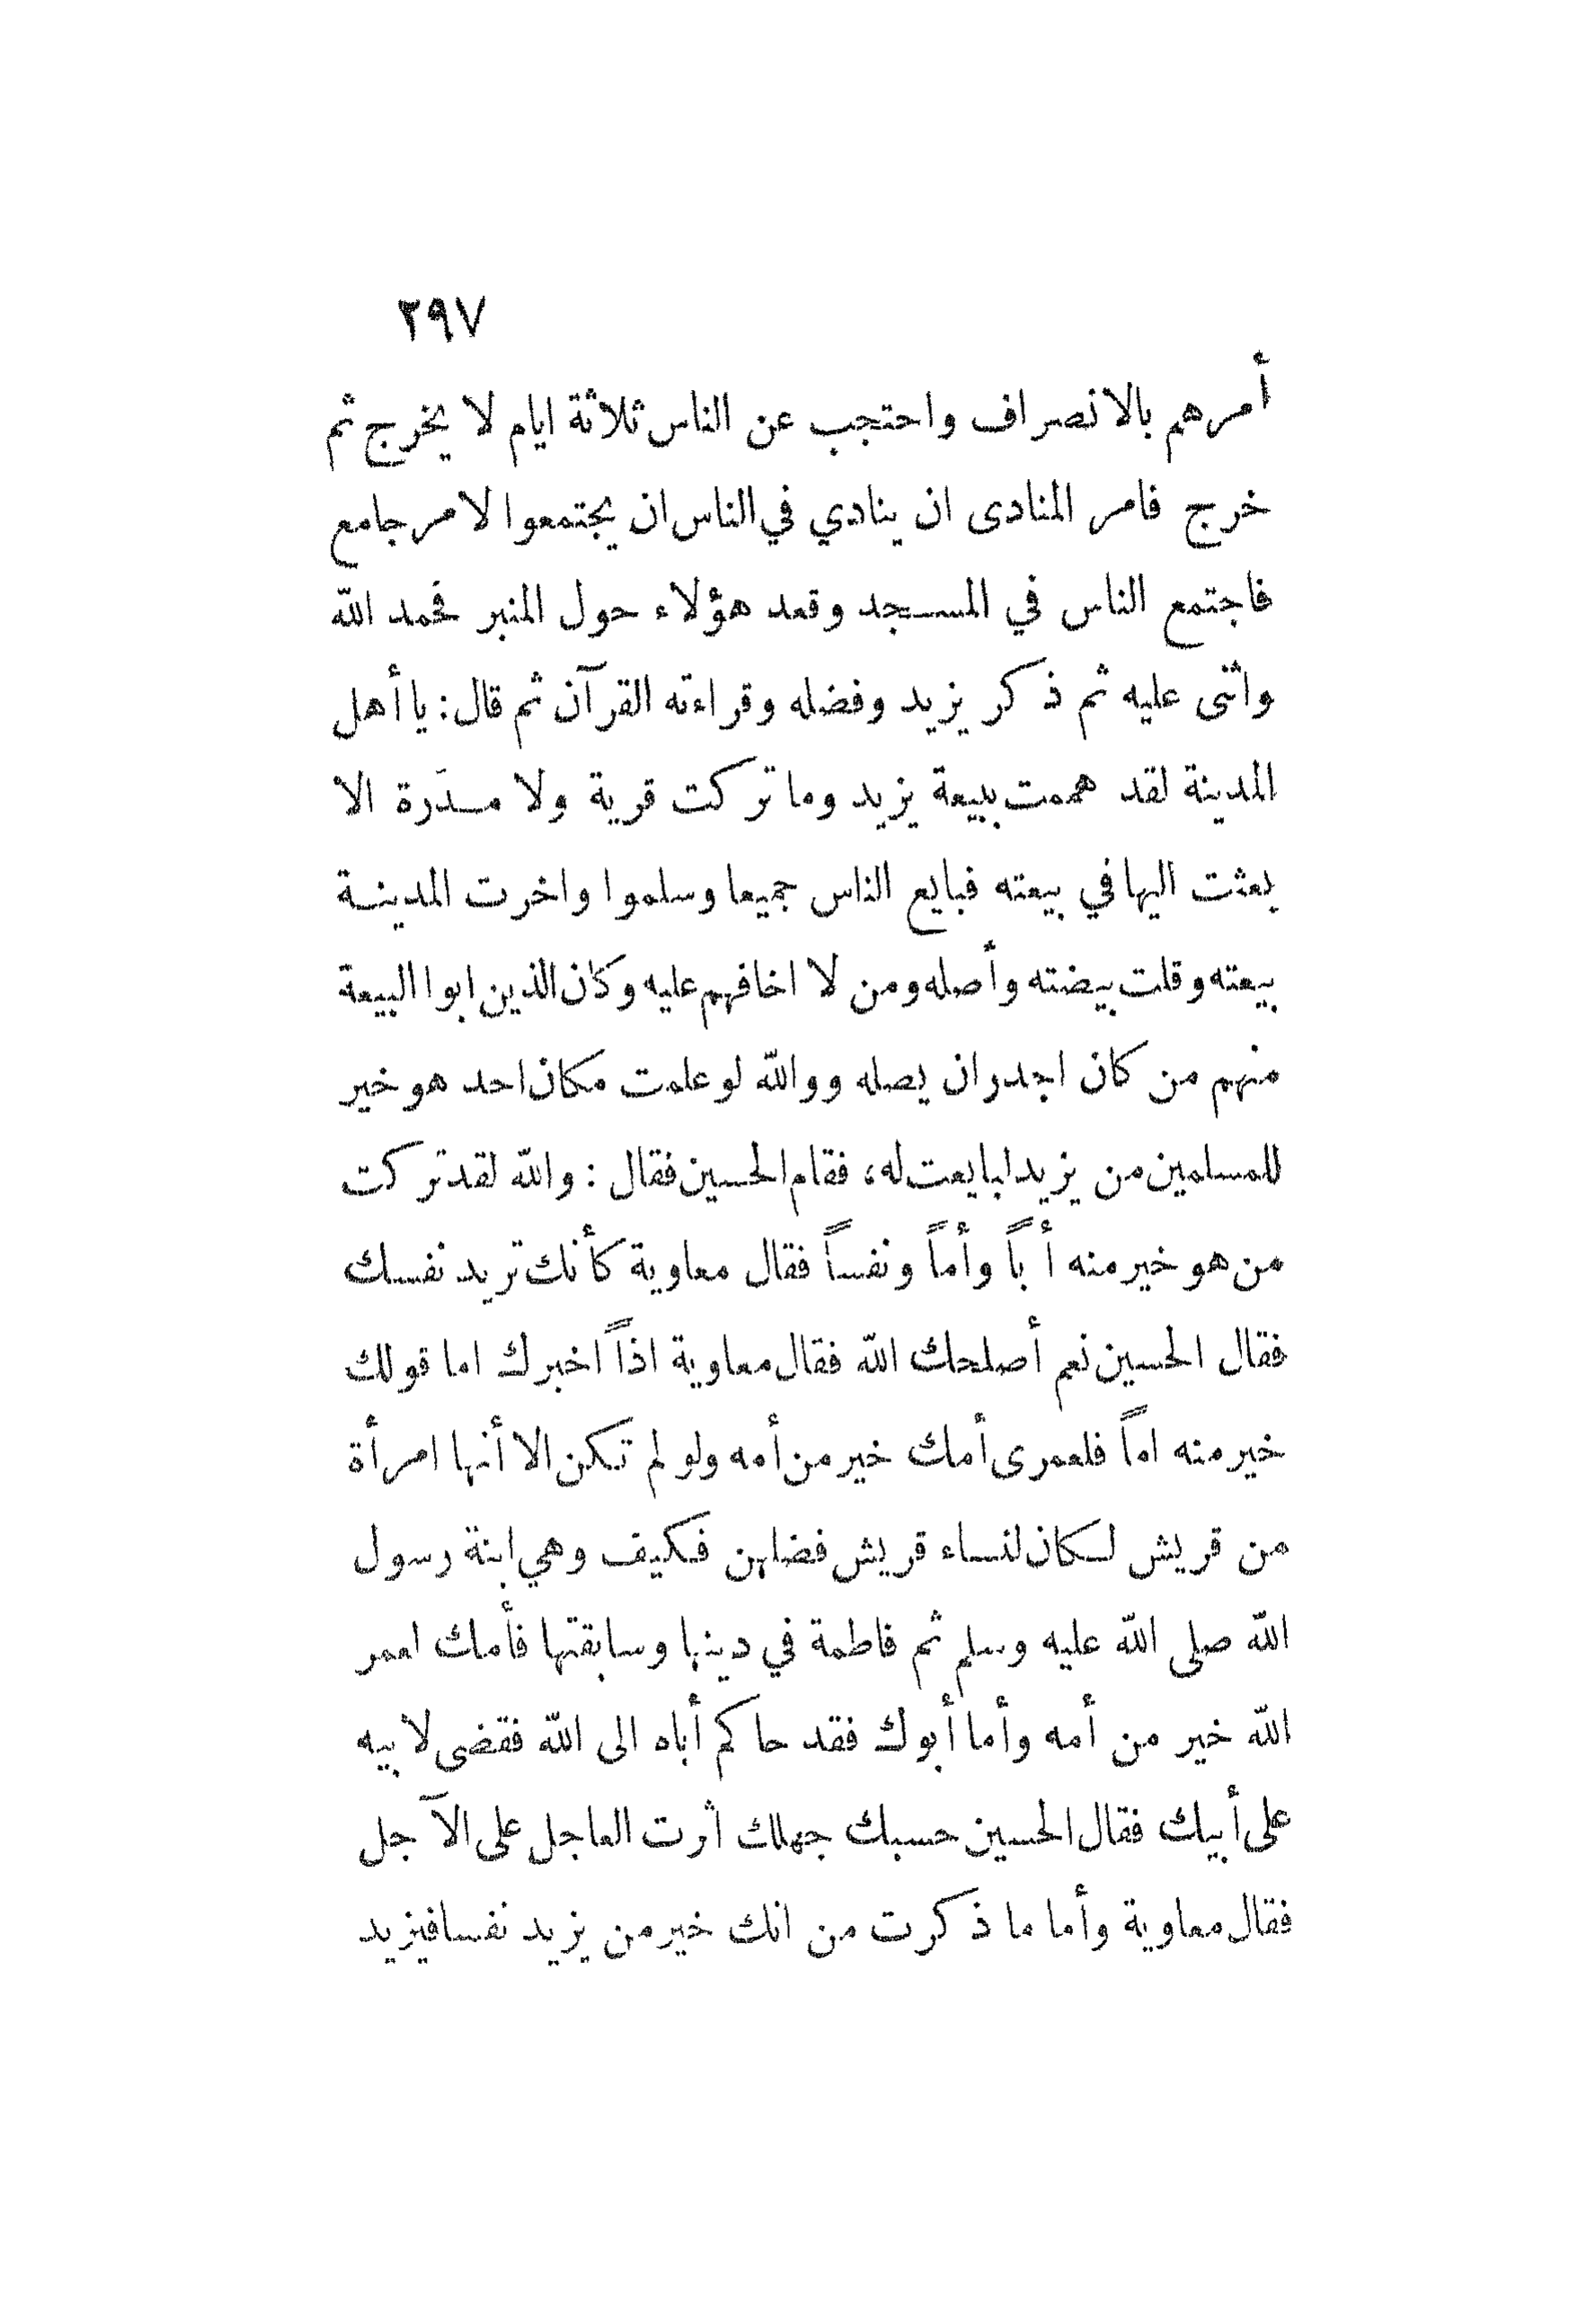 ٢٩٧
أمرهم بالانصراف واحتجب عن الناس ثلاثة ايام لا يخرج ثم
خرج فامر المنادى ان ينادي في الناس ان يجتمعوا لامر جامع
فاجتمع الناس في المسجد وقعد هؤلاء حول المنبر فحمد الله
واثنى عليه ثم ذكر يزيد وفضله وقراءته القرآن ثم قال: يا أهل
المدينة لقد هممت ببيعة يزيد وما تركت قرية ولا مدَرة الا
بعثت اليها في بيعته فبايع الناس جميعا وسلموا واخرت المدينة
بيعته وقلت بيضته وأصله ومن لا اخافهم عليه وكان الذين ابوا البيعة
منهم من كان اجدر ان يصله ووالله لو علمت مكان احد هو خير
للمسلمين من يزيد لبايعت له، فقام الحسين فقال : والله لقد تركت
من هو خير منه أباً وأماً ونفساً فقال معاوية كأنك تريد نفسك
فقال الحسين نعم أصلحك الله فقال معاوية اذاً اخبرك اما قولك
خير منه اماً فلعمرى أمك خير من أمه ولو لم تكن الا أنها امرأة
من قريش لكان لنساء قريش فضلهن فكيف وهي ابنة رسول
الله صلى الله عليه وسلم ثم فاطمة في دينها وسابقتها فأمك لعمر
الله خير من أمه وأما أبوك فقد حاكم أباه الى الله فقضى لابيه
على أبيك فقال الحسين حسبك جهلك أثرت العاجل على الآجل
فقال معاوية وأما ما ذكرت من انك خير من يزيد نفسا فيزيد